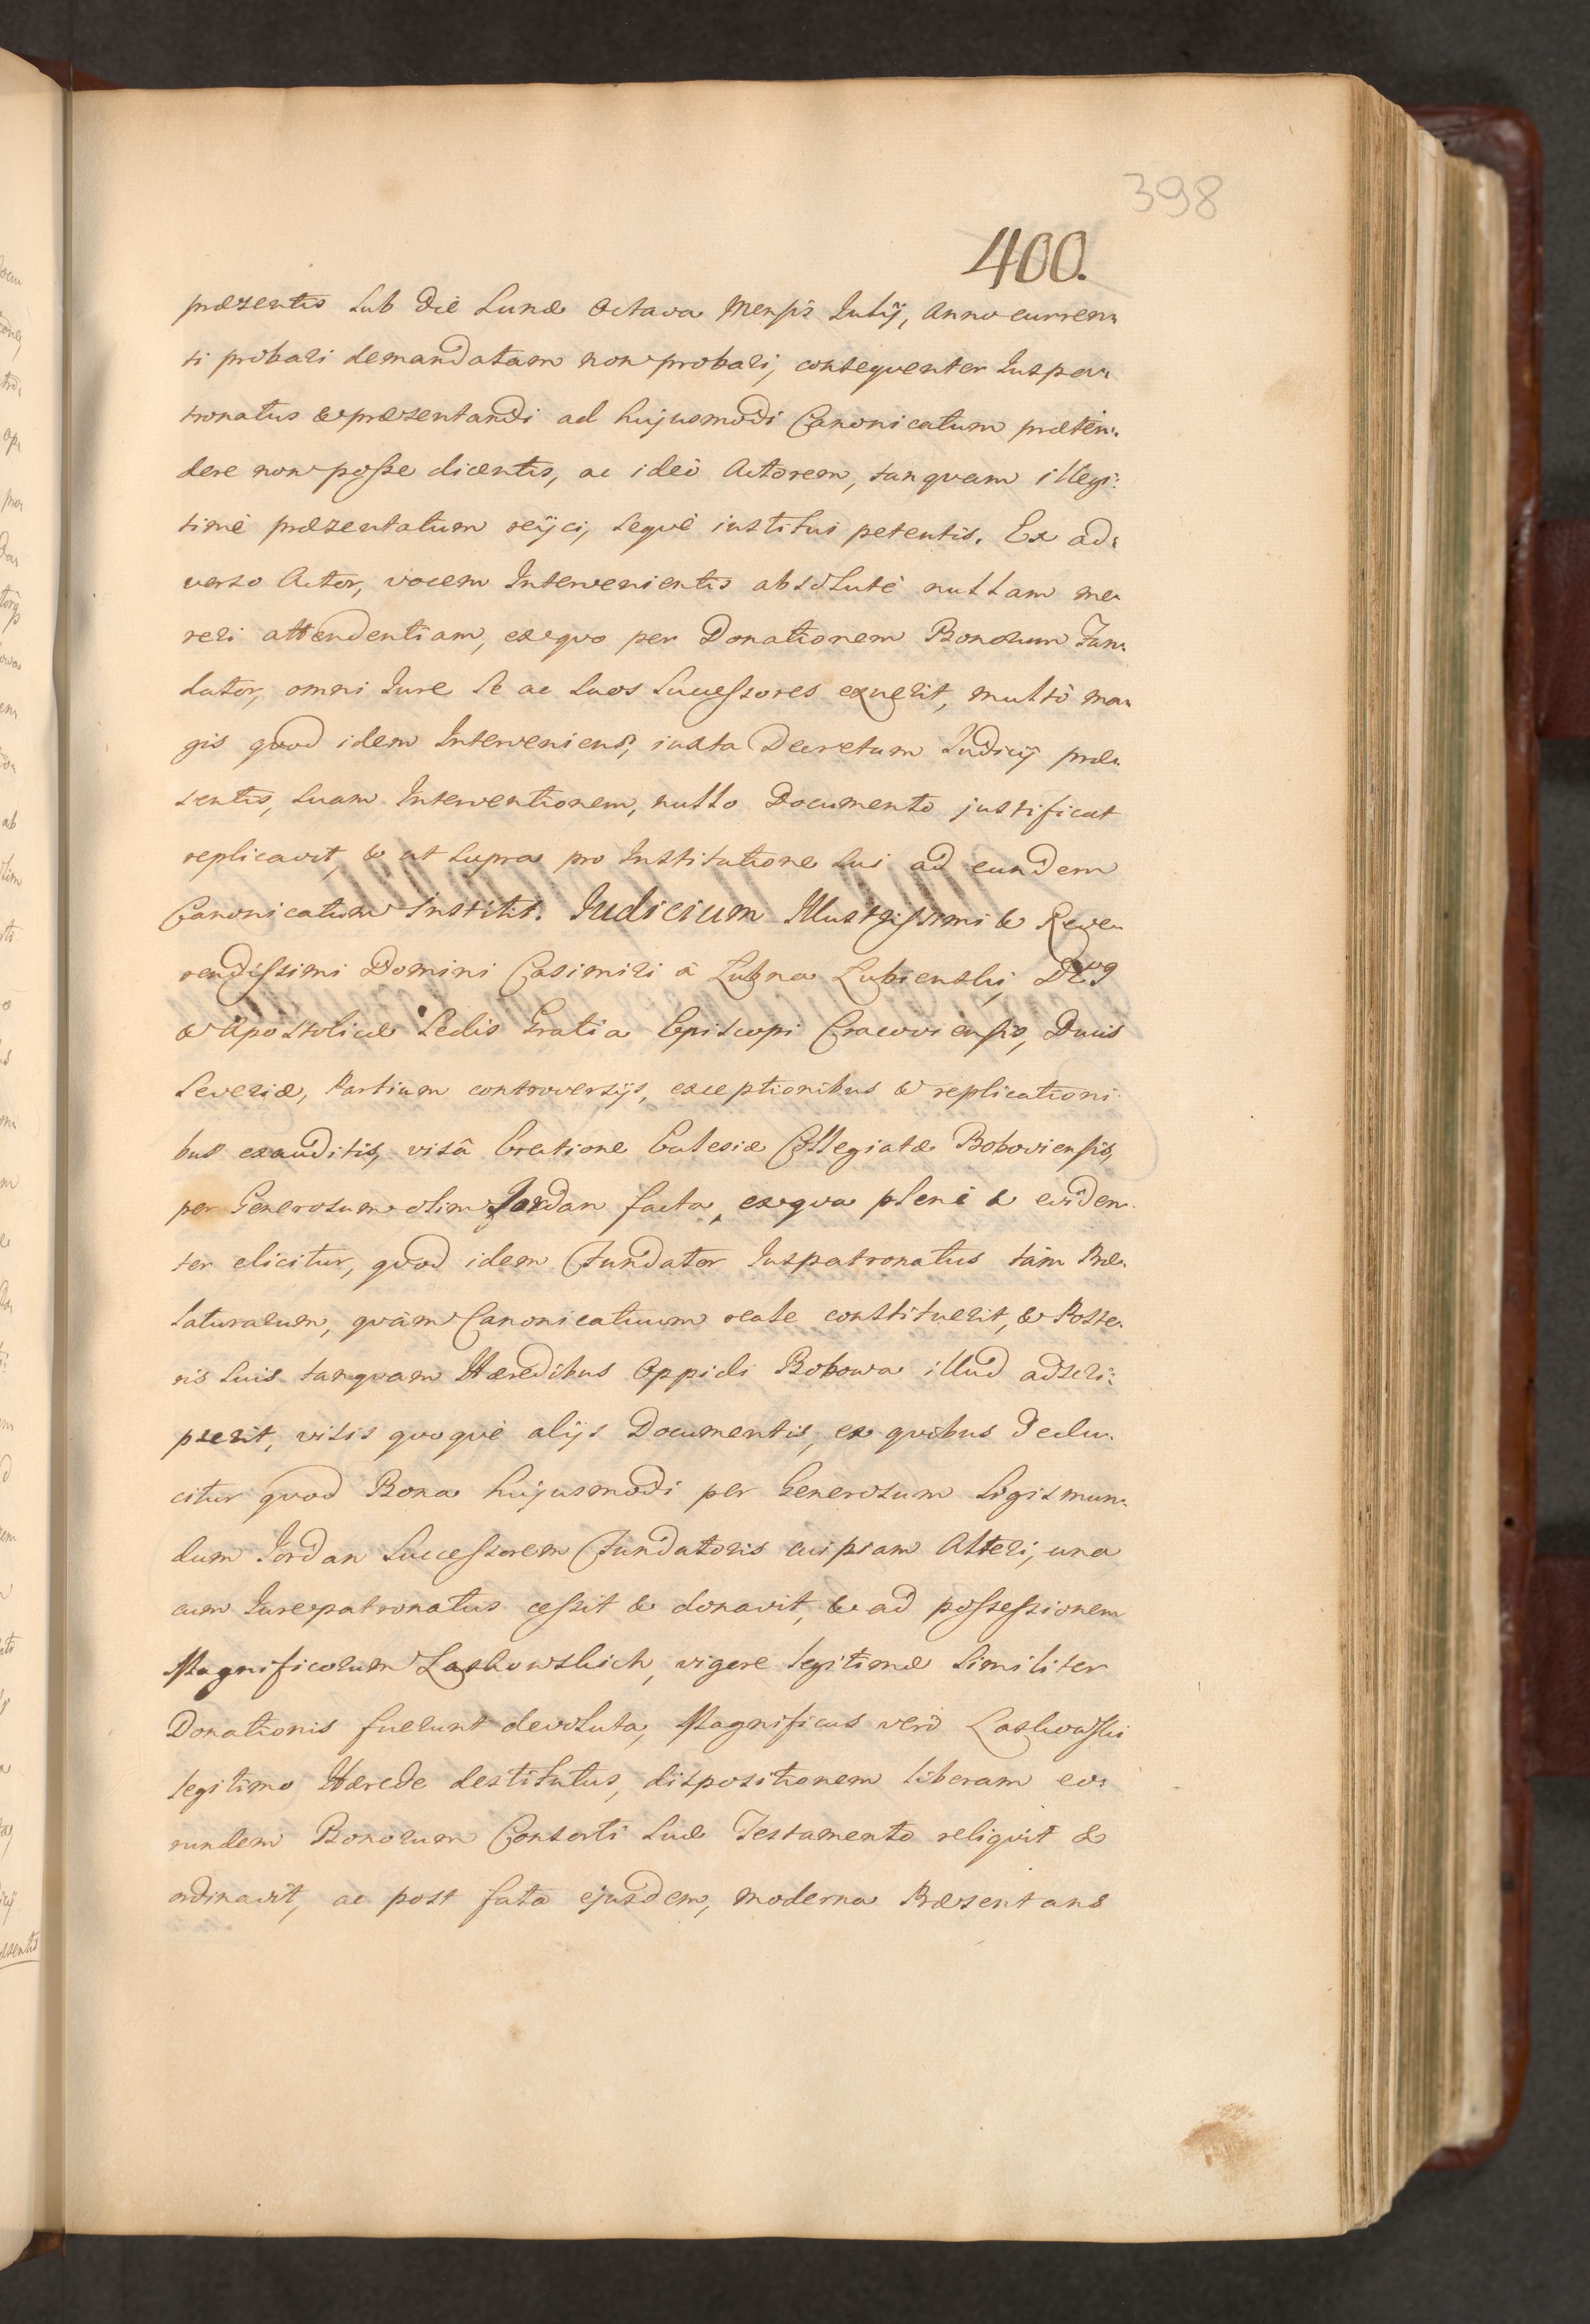 398
400.
præsentis sub die Lunæ octava Mensis Julij, Anno curren:
ti probari demandatam non probari, consequenter Juspa:
tronatus & præsentandi ad hujusmodi Canonicatum præten:
dere non posse dicentis, ac ideò Actorem, tanquam illegi:
timè præsentatum reijci, seque institui petentis. Ex ad:
verso Actor, vocem Intervenientis absolutè nullam me:
reri attendentiam, ex quo per Donationem Bonorum Fun:
dator, omni Jure se ac suos Successores exuerit, multò ma:
gis quod idem Interveniens, iuxta Decretum Judicij præ:
sentis, suam Interventionem, nullo Documento justificat
replicavit, & ut supra pro Institutione sui ad eundem
Canonicatum institit. Judicium Illustrissimi & Reve:
rendissimi Domini Casimiri à Łubna Łubienski, Dei
& Apostolicæ Sedis Gratia Episcopi Cracoviensis, Ducis
Severiæ, Partium controversijs, exceptionibus & replicationi:
bus exauditis, visâ Erectione Ecclesiæ Collegiatæ Boboviensis,
per Generosum olim Jordan facta, ex qua plenè & eviden:
ter elicitur, quod idem Fundator Juspatronatus tàm Præ:
laturarum, quàm Canonicatuum reale constituerit, & Poste:
ris suis tanquam Hæredibus Oppidi Bobowa illud adscri:
pserit, visis quoquè alijs Documentis, ex quibus dedu:
citur quod Bona hujusmodi per Generosum Sigismun:
dum Jordan Successorem Fundatoris cuipiam Alteri, una
cum Jurepatronatus cessit & donavit, & ad possessionem
Magnificorum Łaskowskich, vigore legitimæ similiter
Donationis fuerunt devoluta, Magnificus verò Łaskowski
legitimo Hærede destitutus, dispositionem liberam eo:
rundem Bonorum Consorti suæ Testamento reliquit &
ordinavit, ac post fata ejusdem, moderna Præsentans